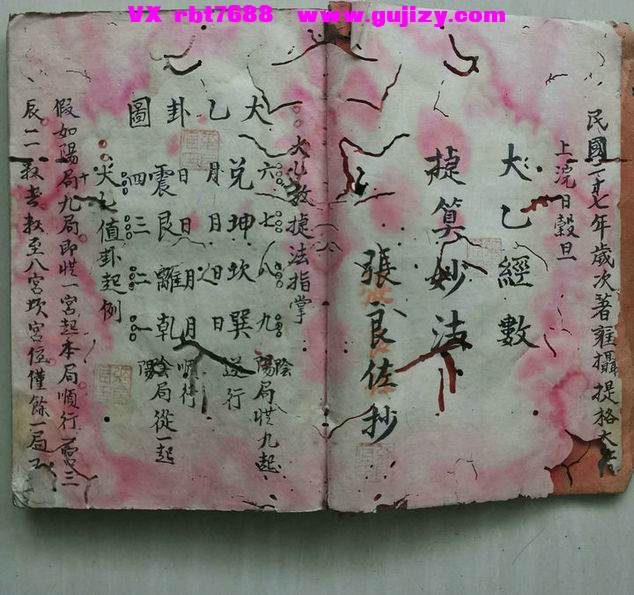 VX rbt7688 www.gujizy.com
民國二十七年歲次著雍攝提格大
上浣日穀旦
太乙經數
捷算妙法
張良佐抄
一太乙數捷法指掌
太乙卦圖
六七八九
陰陽局從九起
兌坤坎巽逆行
月日 日
日日月月
震艮離乾順行
四三二一
陰陽局從一起
太乙值卦起例
假如陽局九局即從一宮起本局順行
至八宮坎宮位僅餘一局